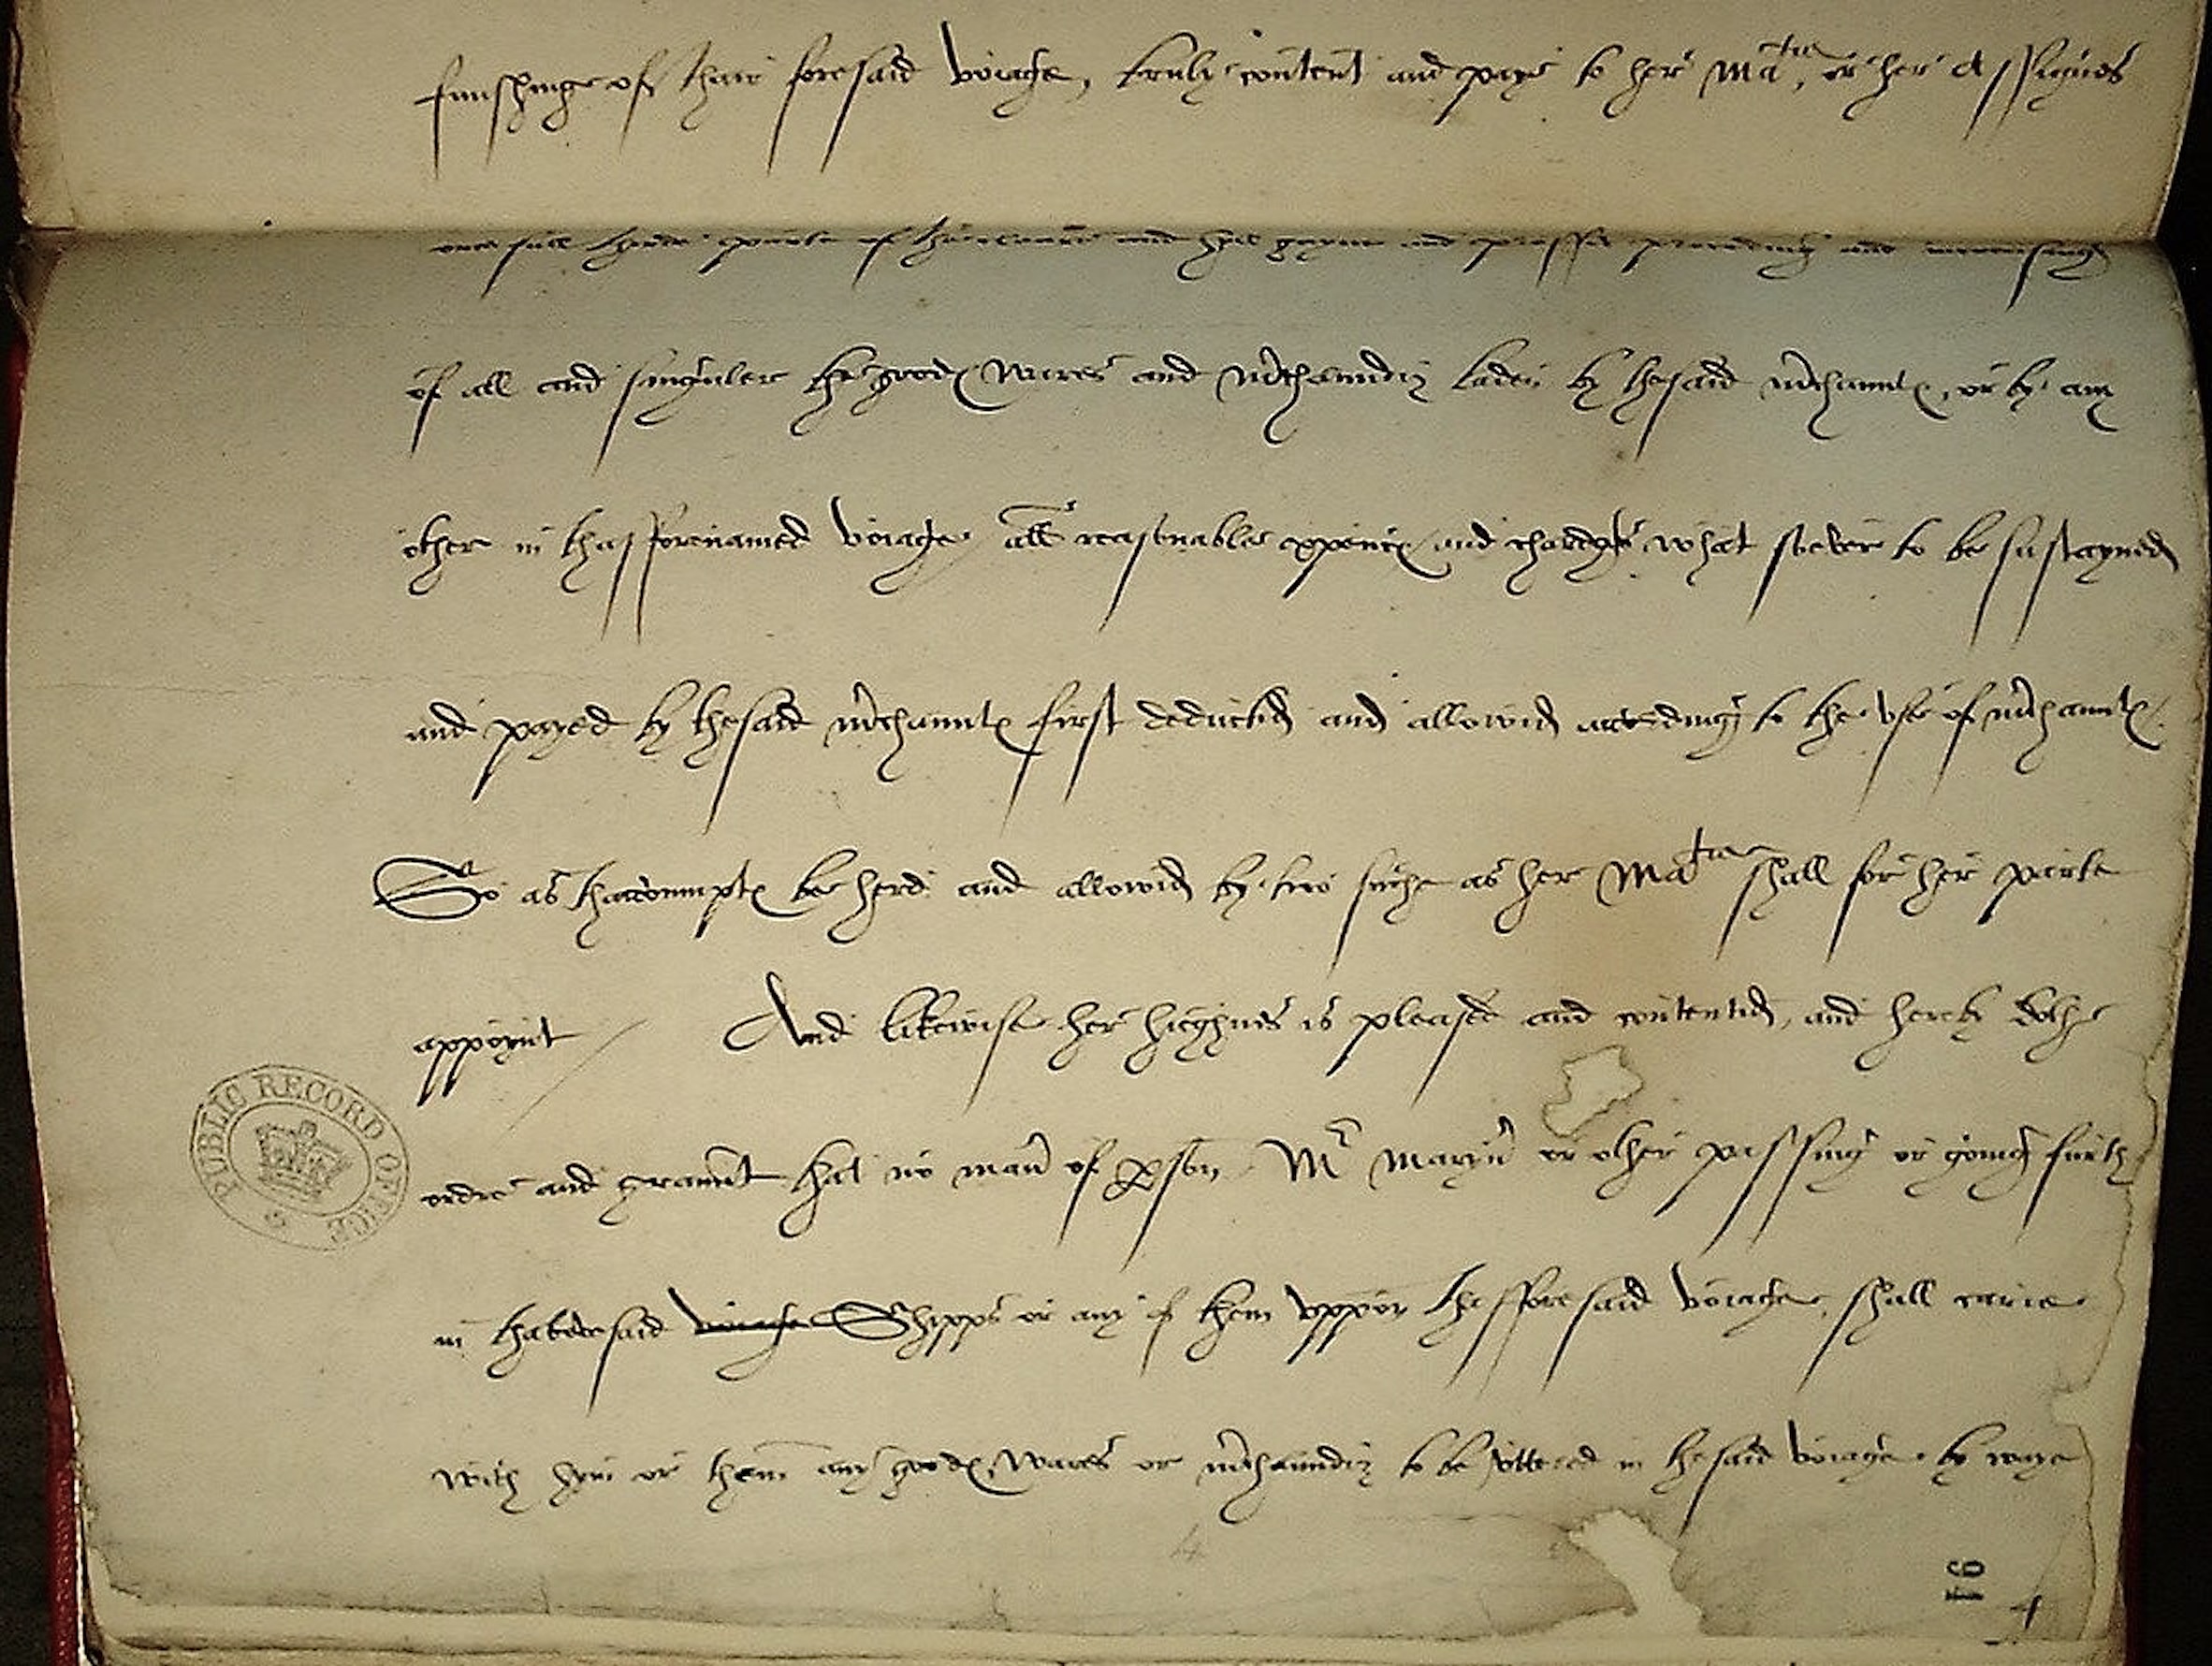 finishinge of thair foresaid voiage, truly content and paye to her Matie, or her assignes
one full therde parte of the cleare and gayne and proffit proceding and
of all and singuler the goodes wares and mrchaundiz laden by thesaid mrchauntes, or by any
other in thafforenamed voiage all reasonable expences and chardges what soever to be susteyned
and payed by thesaid mrchauntes first deducted and allowid according to the use of mrchauntes.
So as thaccomptes be herd and allowid by two suche as her Matie shall for her parte
appoynt / And likewise her hieghnes is pleased and contentid, and hereby dothe
ordre and graunt that no maner of pson Mr Maryner or other passing or going furth
in thabovesaid voiage Shipps or any of them uppon thafforesaid voiage, shall carie
with hym or them any goodes, wares or mrchaundiz to be uttered in thesaid voiage by waye
PUBLIC RECORD OFFICE
4
91
4